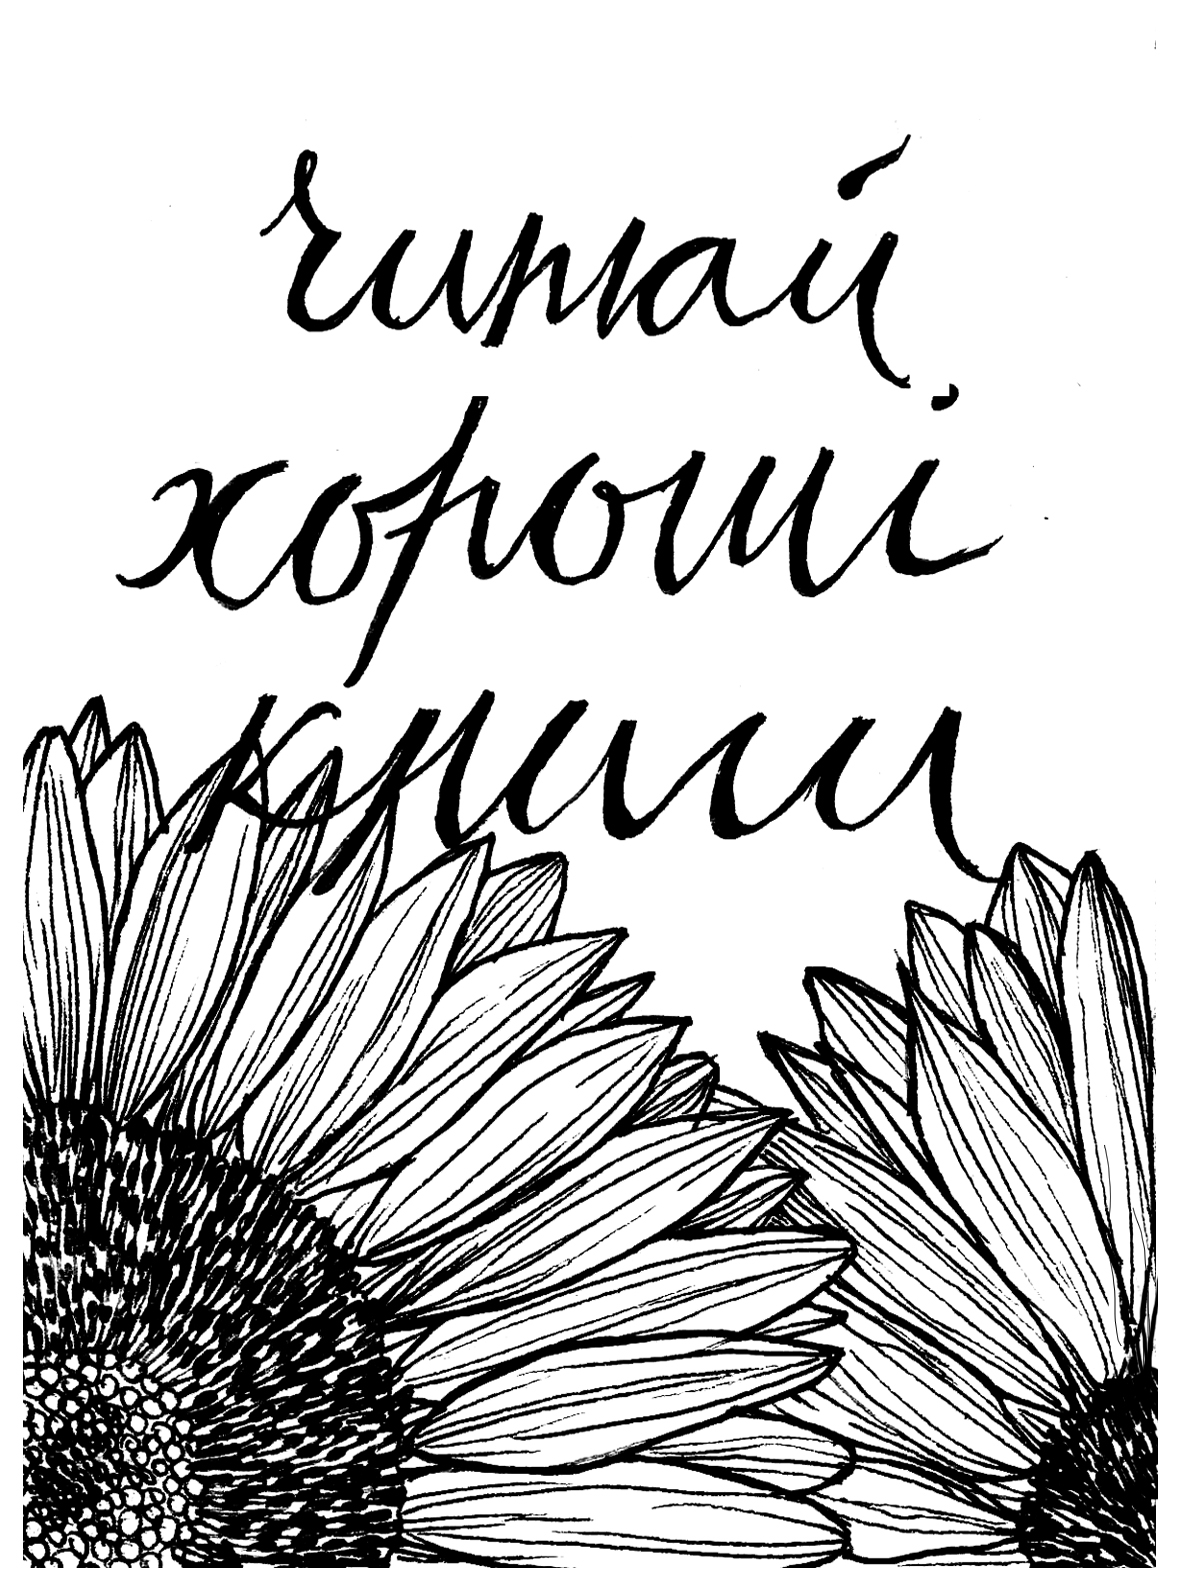 читай
хороші
книги